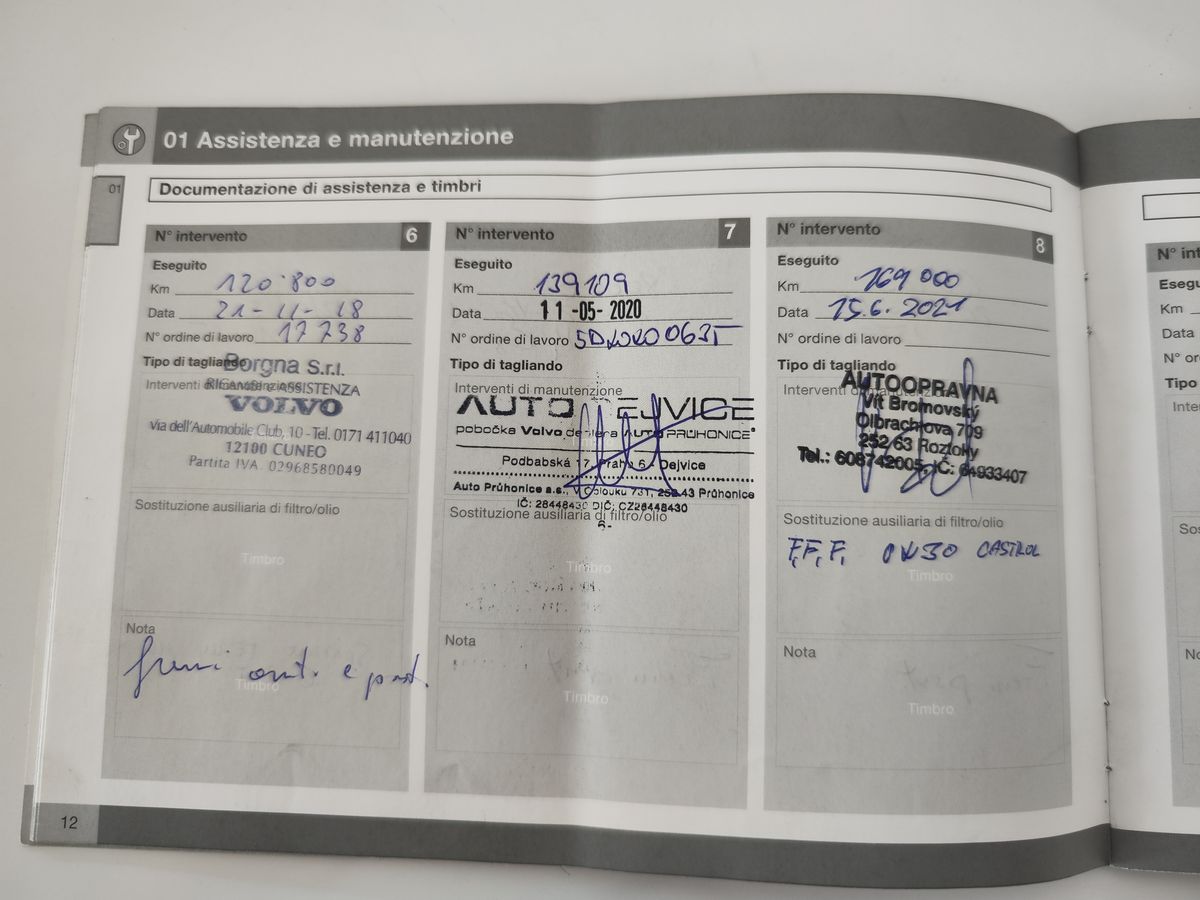 01 Assistenza e manutenzione
01
Documentazione di assistenza e timbri
N° intervento 6
Eseguito
Km 120'800
Data 21-11-18
N° ordine di lavoro 17738
Tipo di tagliando
Borgna S.r.l.
Interventi di manutenzione
RICAMBI e ASSISTENZA
VOLVO
Via dell'Automobile Club, 10 - Tel. 0171 411040
12100 CUNEO
Partita IVA 02968580049
Sostituzione ausiliaria di filtro/olio
Timbro
Nota
freni ant. e post.
Timbro
N° intervento 7
Eseguito
Km 139109
Data 11-05-2020
N° ordine di lavoro
Tipo di tagliando
Interventi di manutenzione
AUTO DEJVICE
pobočka Volvo dealera AUTO PRŮHONICE
Podbabská 17, Praha 6 - Dejvice
Auto Průhonice a.s., V Oblouku 731, 252 43 Průhonice
IČ: 28448430 DIČ: CZ28448430
-6-
Sostituzione ausiliaria di filtro/olio
Timbro
Nota
Timbro
N° intervento 8
Eseguito
Km 169 000
Data 15.6.2021
N° ordine di lavoro
Tipo di tagliando
Interventi di manutenzione
AUTOOPRAVNA
Vít Bromovský
Olbrachtova 709
252 63 Roztoky
Tel.: 608742005, IČ: 64933407
Sostituzione ausiliaria di filtro/olio
F, F, F, 0W30 CASTROL
Timbro
Nota
Timbro
N° int
Esegu
Km
Data
N° or
Tipo
Inter
Sos
No
12